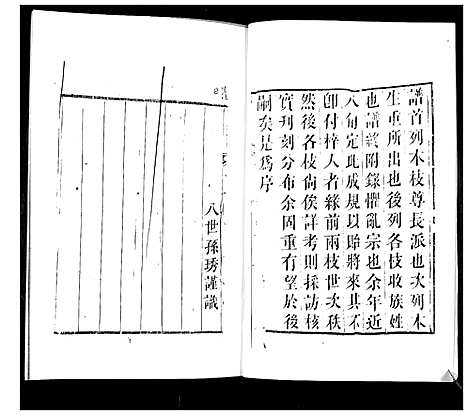 譜首列木枝尊長派也次列木
生重所出也後列各枝收族姓
也譜終附錄懼亂宗也余年近
八旬定此成規以貽將來其不
卽付梓人者緣前兩枝世次秩
然後各枝尙俟詳考則採訪核
實刋刻分布余固重有望於後
嗣矣是爲序
八世孫琇謹識